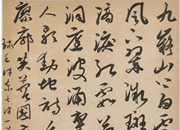 九嶷山上白雲
風下翠微斑
滴淚紅霞
洞庭波涌
人歌動地詩
寥廓芙蓉國
毛澤東七律一